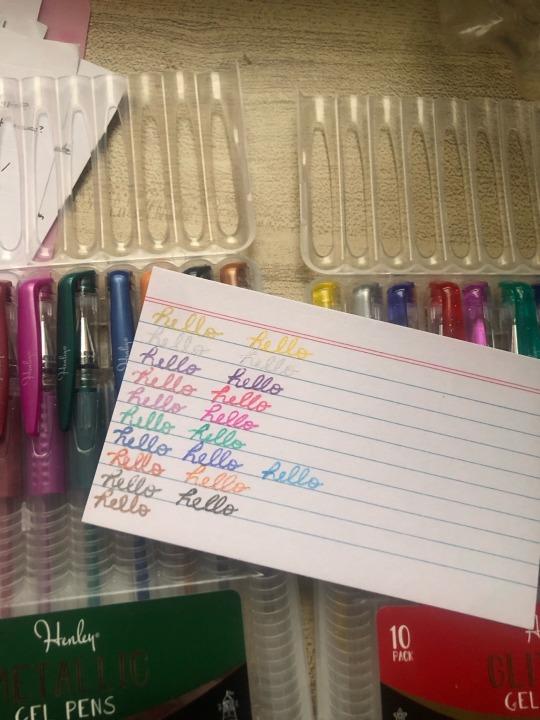 hello hello
hello hello
hello hello
hello hello
hello hello
hello hello
hello hello hello
hello hello
hello hello
hello
METALLIC
GEL PENS
10
PACK
GEL